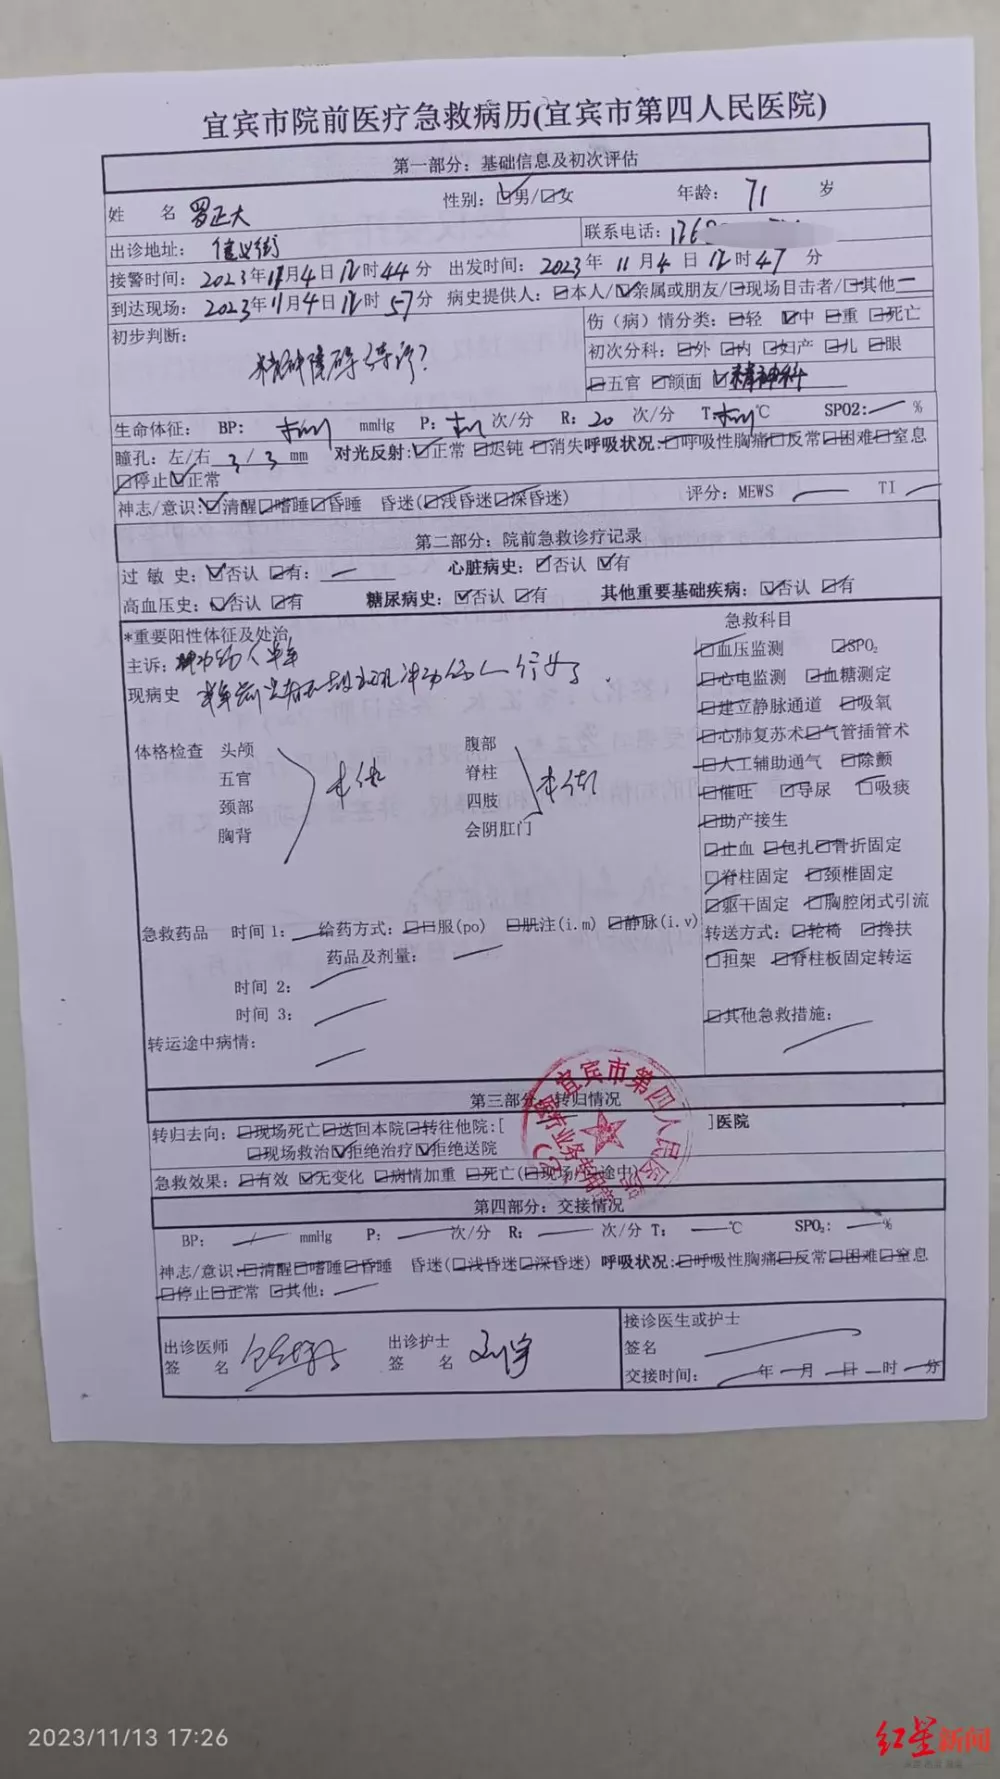 宜宾市院前医疗急救病历(宜宾市第四人民医院)
第一部分：基础信息及初次评估
姓 名 罗正大 性别：☑男/☐女 年龄：71 岁
出诊地址： 信义街 联系电话：
接警时间：2023年11月4日12时44分 出发时间：2023年11月4日12时47分
到达现场：2023年11月4日12时57分 病史提供人：☐本人/☑亲属或朋友/☐现场目击者/☐其他
初步判断： 伤（病）情分类：☐轻 ☑中 ☐重 ☐死亡
精神障碍待诊？ 初次分科：☐外 ☐内 ☐妇产 ☐儿 ☐眼
☐五官 ☐颌面 ☑精神科
生命体征： BP： mmHg P： 次/分 R：20 次/分 T： ℃ SPO2：— %
瞳孔：左/右 3 / 3 mm 对光反射：☑正常 ☐迟钝 ☐消失 呼吸状况：☐呼吸性胸痛☐反常☐困难☐窒息
☐停止☑正常
神志/意识：☑清醒☐嗜睡☐昏睡 昏迷(☐浅昏迷☐深昏迷) 评分：MEWS — TI —
第二部分：院前急救诊疗记录
过 敏 史：☑否认 ☐有：— 心脏病史：☐否认 ☑有
高血压史：☑否认 ☐有 糖尿病史：☑否认 ☐有 其他重要基础疾病：☑否认 ☐有
*重要阳性体征及处治 急救科目
主诉： ☐血压监测 ☐SPO₂
现病史 ☐心电监测 ☐血糖测定
☐建立静脉通道 ☐吸氧
☐心肺复苏术☐气管插管术
体格检查 头颅 腹部 ☐人工辅助通气 ☐除颤
五官 脊柱 ☐催吐 ☐导尿 ☐吸痰
颈部 四肢 ☐助产接生
胸背 会阴肛门 ☐止血 ☐包扎☐骨折固定
☐脊柱固定 ☐颈椎固定
☐躯干固定 ☐胸腔闭式引流
急救药品 时间 1：— 给药方式：☐口服(po) ☐肌注(i.m) ☐静脉(i.v) 转送方式：☐轮椅 ☐搀扶
药品及剂量：— ☐担架 ☐脊柱板固定转运
时间 2：—
时间 3：— ☐其他急救措施：
转运途中病情：
第三部分：转归情况
转归去向：☐现场死亡☐送回本院☐转往他院：[ ]医院
☐现场救治☑拒绝治疗☑拒绝送院
急救效果：☐有效 ☑无变化 ☐病情加重 ☐死亡(☐现场/☐途中)
第四部分：交接情况
BP： / mmHg P：—次/分 R：—次/分 T：—℃ SPO₂：—%
神志/意识：☐清醒☐嗜睡☐昏睡 昏迷(☐浅昏迷☐深昏迷) 呼吸状况：☐呼吸性胸痛☐反常☐困难☐窒息
☐停止☐正常 ☐其他：—
出诊医师 出诊护士 接诊医生或护士
签 名 签 名 签名
交接时间： 年 月 日 时 分
宜宾市第四人民医院
2023/11/13 17:26
红星新闻